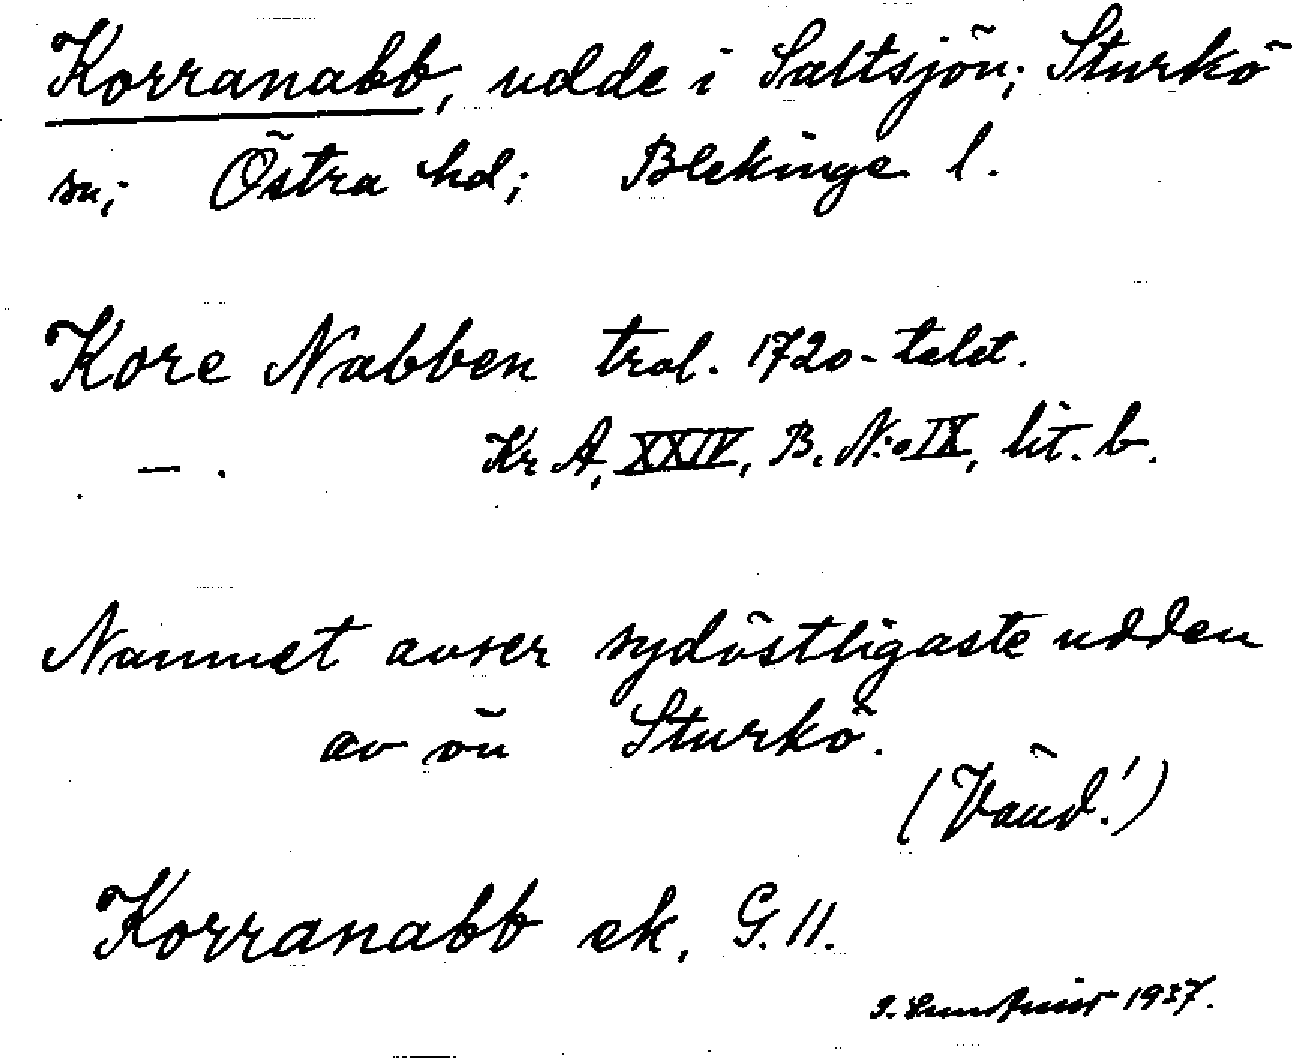 Korranabb, udde i Saltsjön; Sturkö
sn; Östra hd; Blekinge l.
Kore Nabben trol. 1720-talet.
— . Kr A, XXIV, B. N:o IX, lit. b.
Namnet avser sydöstligaste udden
av ön Sturkö.
(Vänd!)
Korranabb ek, G. 11.
1937.